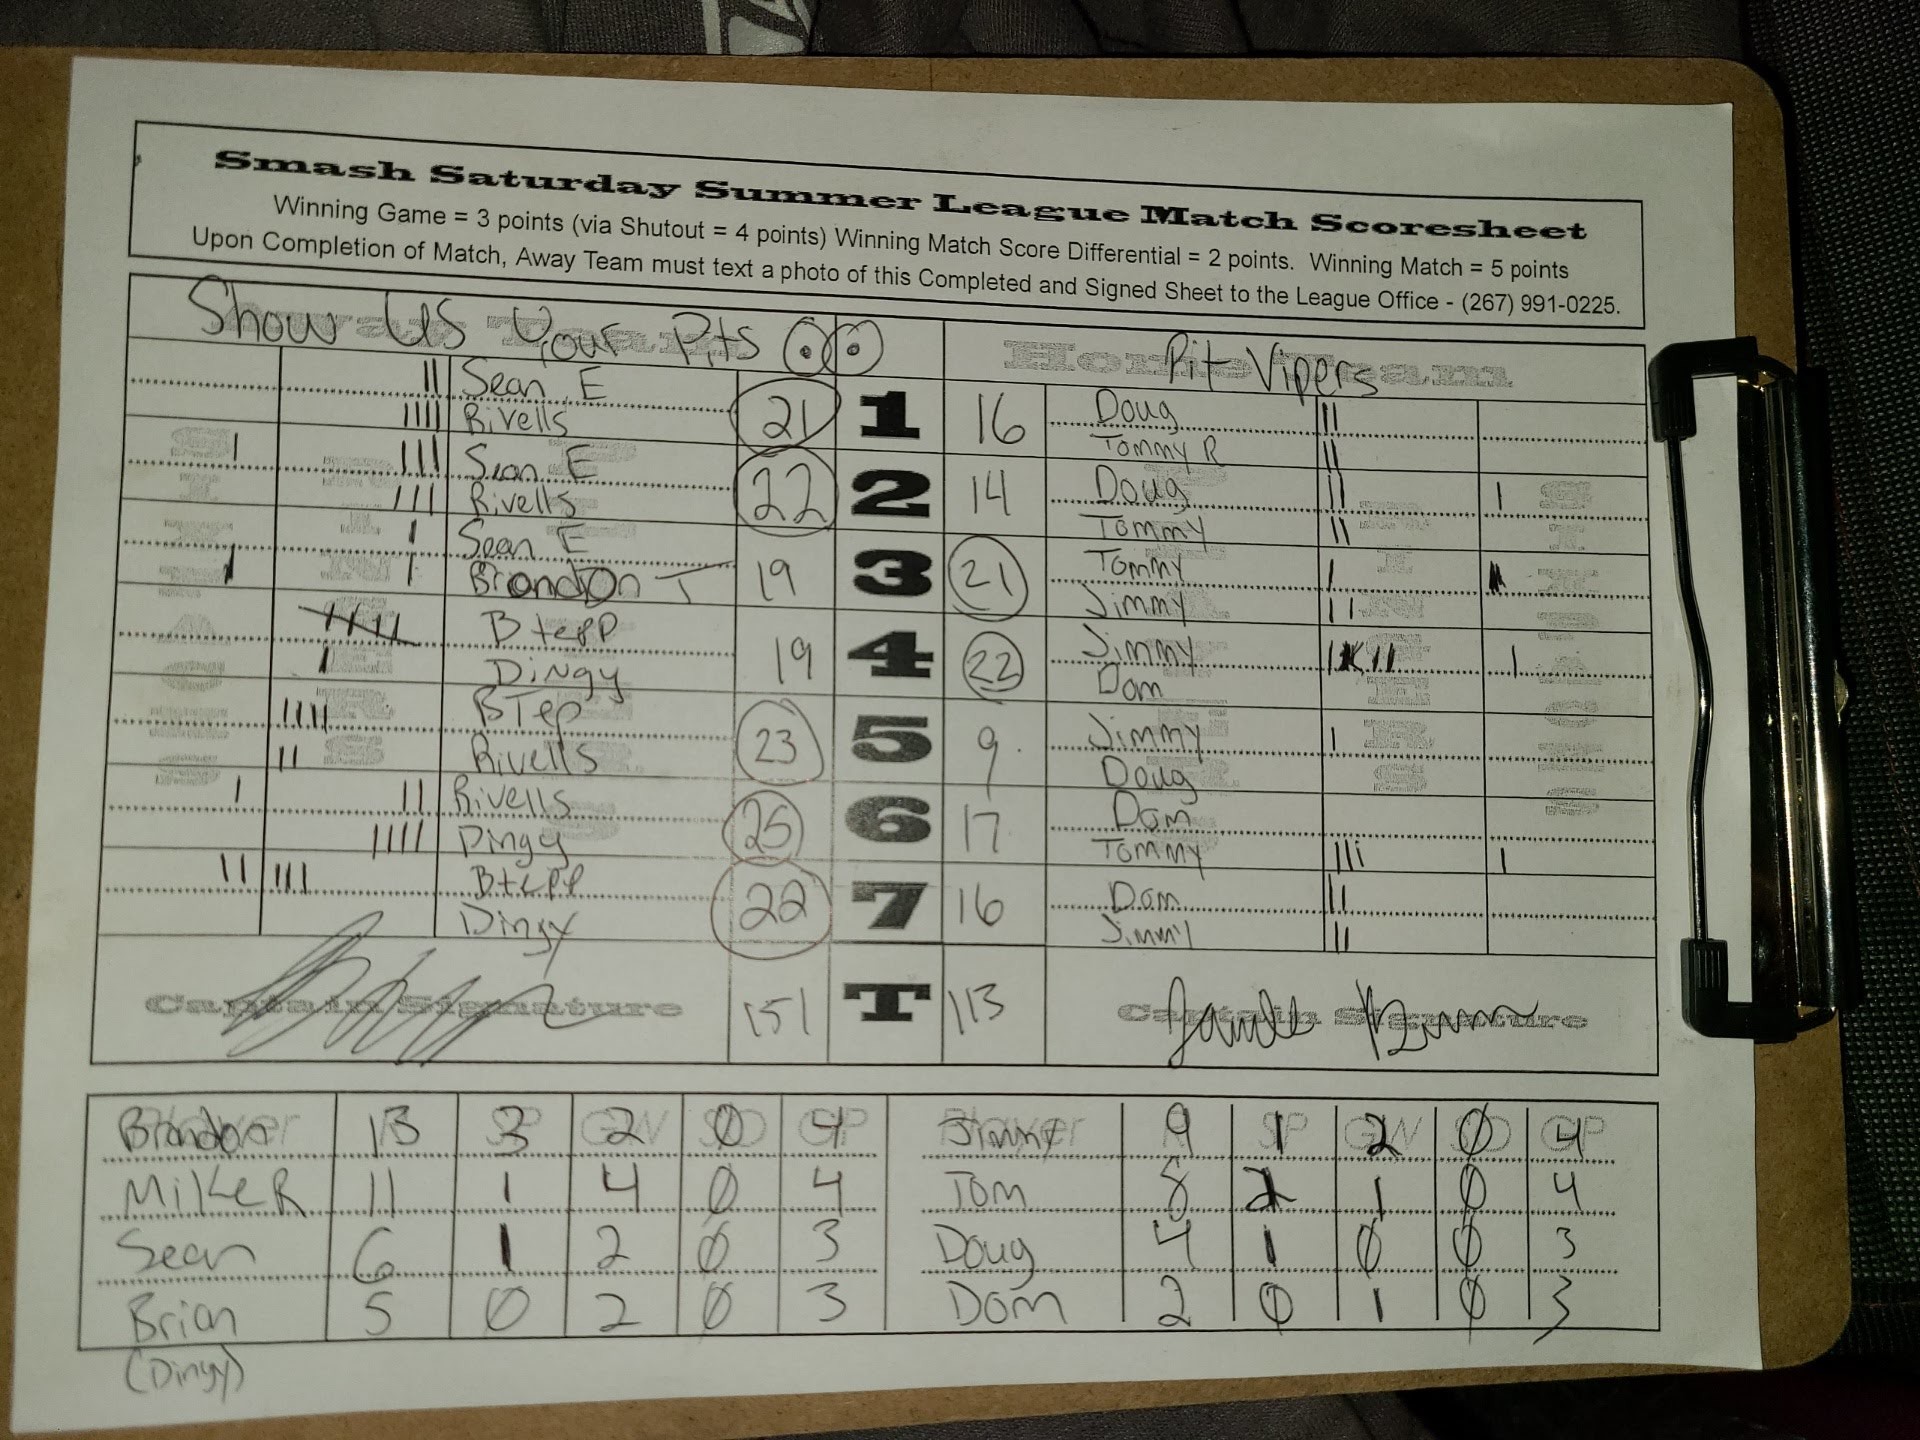 Smash Saturday Summer League Match Scoresheet
Winning Game = 3 points (via Shutout = 4 points) Winning Match Score Differential = 2 points. Winning Match = 5 points
Upon Completion of Match, Away Team must text a photo of this Completed and Signed Sheet to the League Office - (267) 991-0225.
Show Us Your Pits Pit Vipers
Home Team
Sean E 21 1 16 Doug
Rivells Tommy R
Sean E 22 2 14 Doug
Rivells Tommy
Sean E 19 3 21 Tommy
Brandon T Jimmy
B tepp 19 4 22 Jimmy
Dingy Dom
B Tep 23 5 9 Jimmy
Rivells Doug
Rivells 25 6 17 Dom
Dingy Tommy
Btepp 22 7 16 Dom
Dingy Jimmy
Captain Signature 151 T 113 Captain Signature
Brandon 13 3 2 0 4 Jimmy 9 1 2 0 4
Player SP GW SO GP Player SP GW SO GP
Mike R 11 1 4 0 4 Tom 8 2 1 0 4
Sean 6 1 2 0 3 Doug 4 1 0 0 3
Brian 5 0 2 0 3 Dom 2 0 1 0 3
(Dingy)